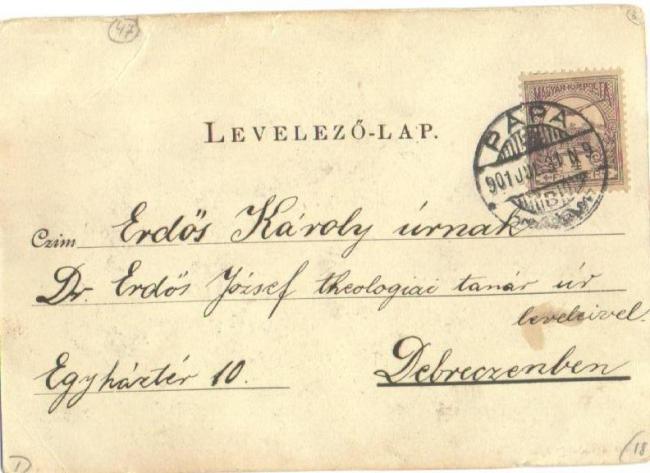 47
MAGYAR KIR. POSTA
LEVELEZŐ-LAP.
PÁPA
901 JUL
Czim Erdős Károly úrnak
Dr. Erdős József theologiai tanár úr
leveleivel.
Egyháztér 10. Debreczenben
18